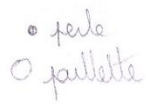 perle
paillette